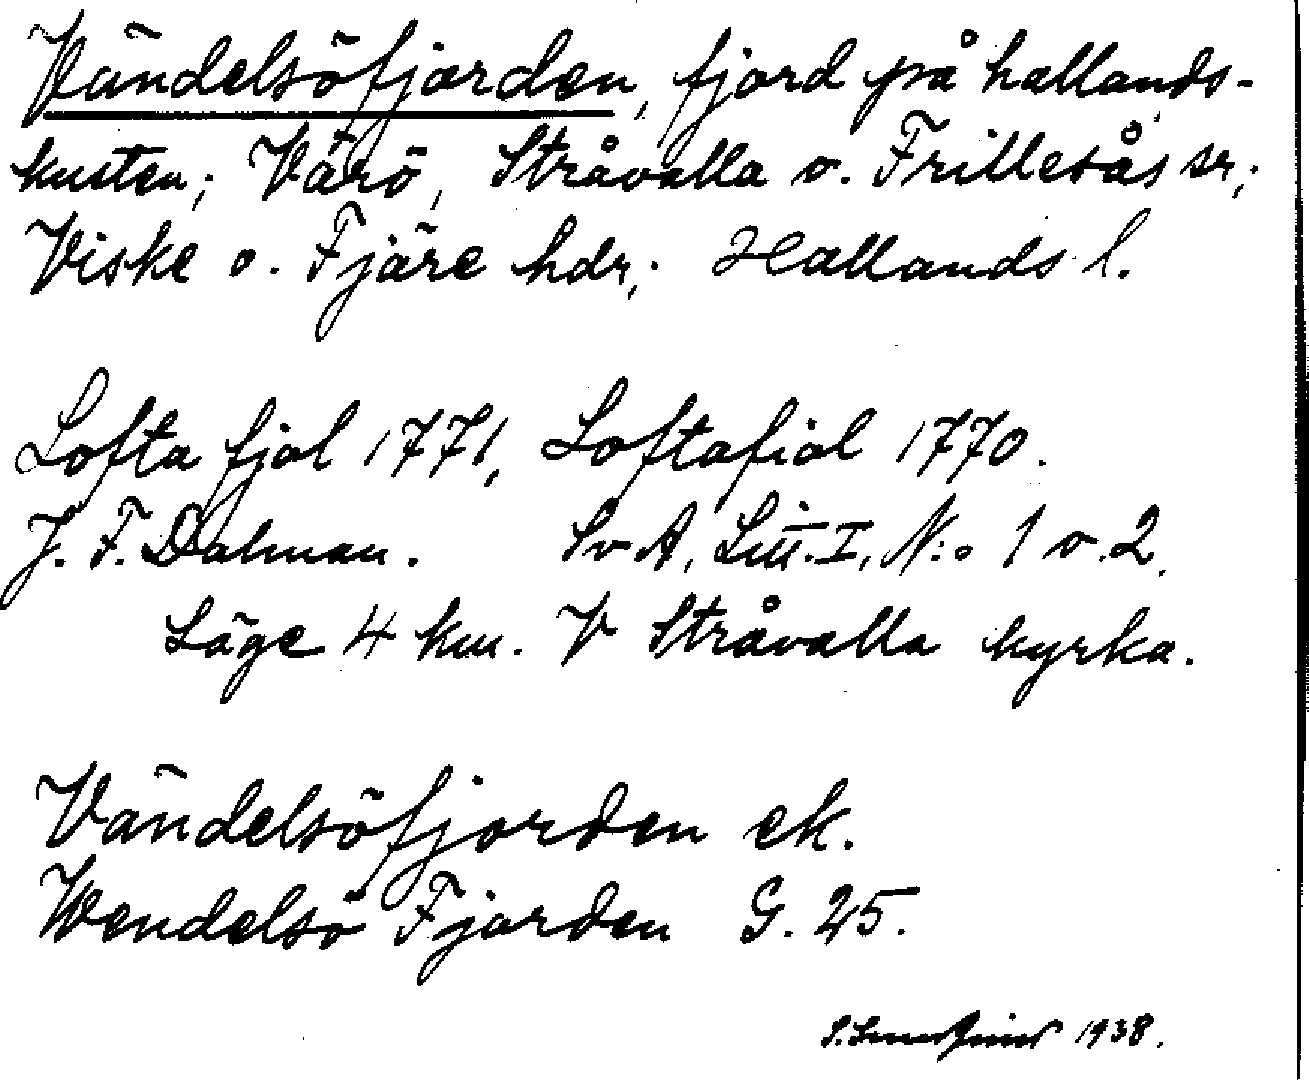 Vändelsöfjorden, fjord på hallands-
kusten; Värö, Stråvalla o. Frillesås sr;
Viske o. Fjäre hdr; Hallands l.
Lofta fjol 1771, Loftafiol 1770.
J. F. Dalman. SvA, Litt. I, N:o 1 o. 2.
Läge 4 km. V Stråvalla kyrka.
Vändelsöfjorden ek.
Wendelsö Fjorden G. 25.
1938.